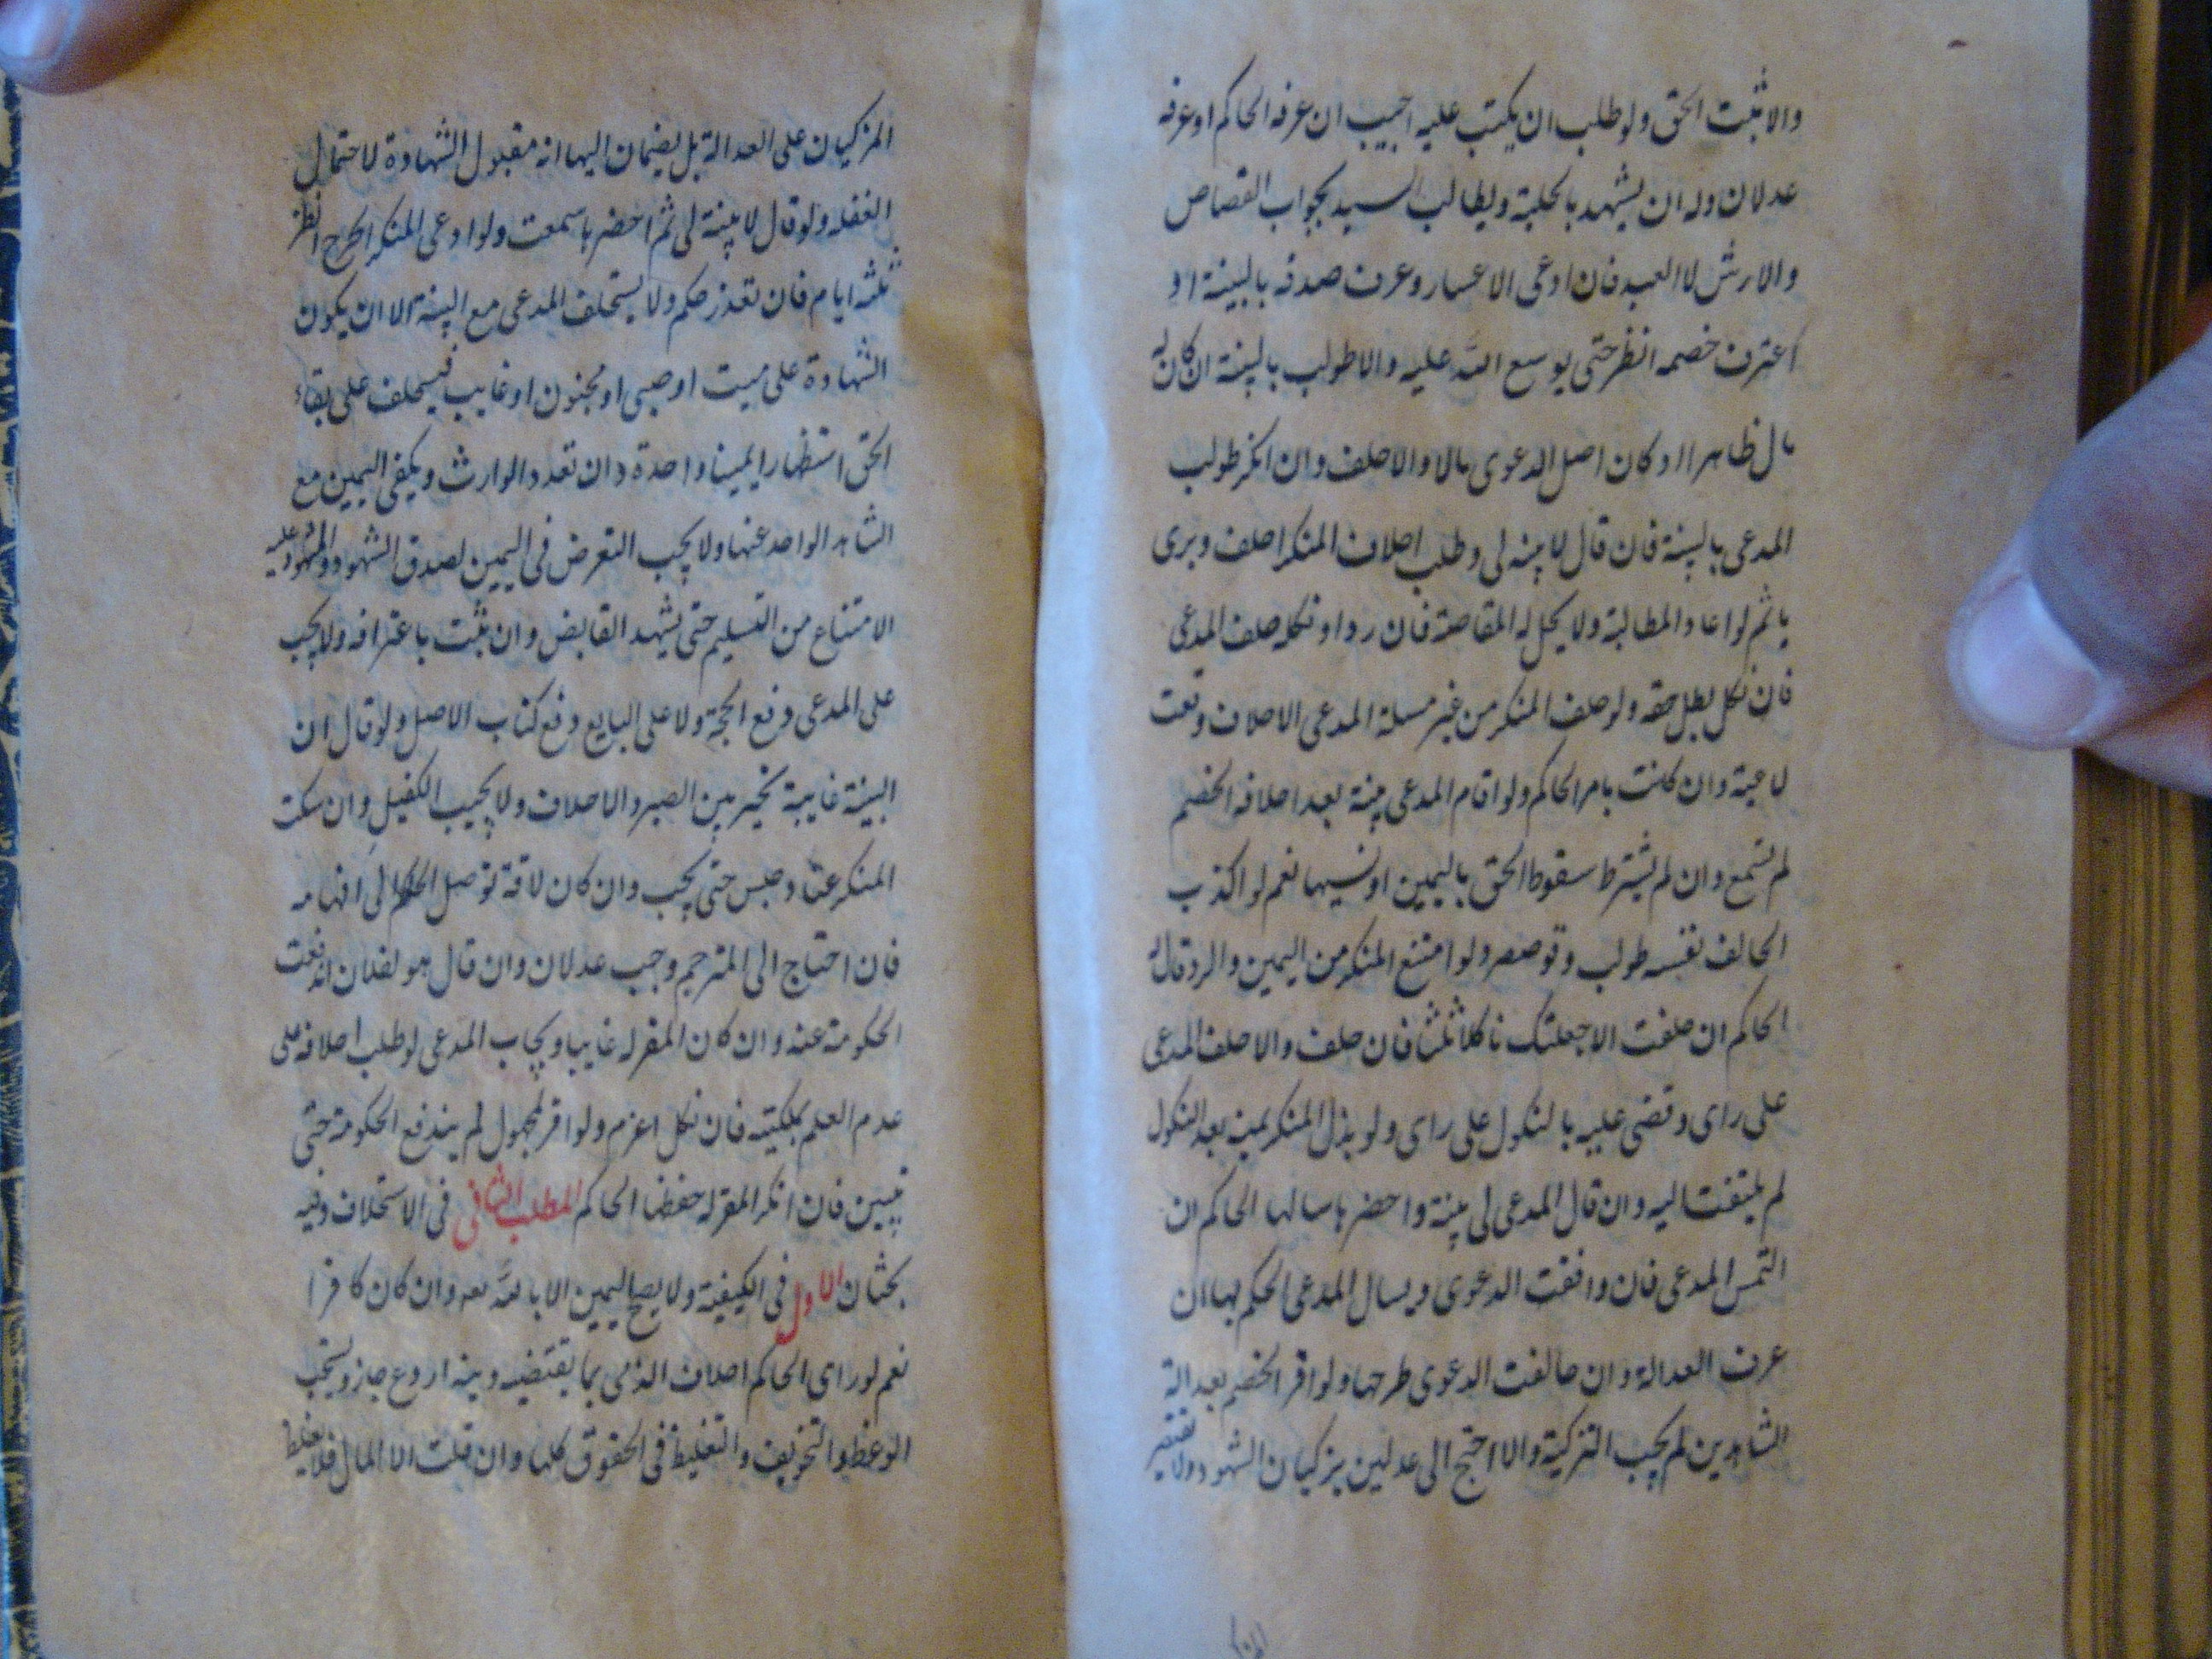 والا ثبت الحق ولو طلب ان يكتب عليه اجيب ان عرفه الحاكم او عرفه
عدلان وله ان يشهد بالحلية ويطالب السيد بجواب القصاص
والارش لا العبد فان ادعى الاعسار وعرف صدقه بالبينة او
اعترف خصمه انظر حتى يوسع الله عليه والا طولب بالبينة ان كان له
مال ظاهرا او كان اصل الدعوى مالا والا حلف وان انكر طولب
المدعى بالبينة فان قال لا بينه لى وطلب احلاف المنكر احلف وبرى
ياثم لو اعاد المطالبة ولا يحل له المقاصة فان رد او نكل حلف المدعى
فان نكل بطل حقه ولو حلف المنكر من غير مسئلة المدعى الاحلاف وقعت
لاغية وان كانت بامر الحاكم ولو اقام المدعى بينة بعد احلافه الخصم
لم تسمع وان لم يشترط سقوط الحق باليمين او نسيها نعم لو اكذب
الحالف نفسه طولب وقوصص ولو امتنع المنكر من اليمين والرد قال له
الحاكم ان حلفت الا جعلتك ناكلا ثلثا فان حلف والا حلف المدعى
على راى وقضى عليه بالنكول على راى ولو بذل المنكر يمينه بعد النكول
لم يلتفت اليه وان قال المدعى لى بينة واحضرها سالها الحاكم ان
التمس المدعى فان وافقت الدعوى ويسال المدعى الحكم بها ان
عرف العدالة وان خالفت الدعوى طرحها ولو اقر الخصم بعدالة
الشاهدين لم يجب التزكية والا احتج الى عدلين يزكيان الشهود ولا يقتصر
المزكيان على العدالة بل يضمان اليها انه مقبول الشهادة لاحتمال
الغفله ولو قال لا بينة لى ثم احضرها سمعت ولو ادعى المنكر الجرح انظر
ثلثه ايام فان تعذر حكم ولا يستحلف المدعى مع البينة الا ان يكون
الشهادة على ميت او صبى او مجنون او غايب فيستحلف على بقاء
الحق استظهارا يمينا واحدة وان تعدد الوارث ويكفى اليمين مع
الشاهد الواحد عنها ولا يجب التعرض فى اليمين لصدق الشهود وللمشهود عليه
الامتناع من التسليم حتى يشهد القابض وان ثبت باعترافه ولا يجب
على المدعى دفع الحجة ولا على البايع دفع كتاب الاصل ولو قال ان
البينة غايبة تخير بين الصبر والاحلاف ولا يجب الكفيل وان سكت
المنكر عنتا حبس حتى يجيب وان كان لافة توصل الحاكم الى افهامه
فان احتاج الى المترجم وجب عدلان وان قال هو لفلان اندفعت
الحكومة عنه وان كان المقر له غايبا ويجاب المدعى لو طلب احلافه على
عدم العلم بملكيته فان نكل اغرم ولو اقر لمجهول لم يندفع الحكومة حتى
يبين فان انكر المقر له حفظها الحاكم المطلب الثانى فى الاستحلاف وفيه
بحثان الاول فى الكيفية ولا يصح اليمين الا بالله تعه وان كان كافرا
نعم لو راى الحاكم احلاف الذمى بما يقتضيه دينه اردع جاز ويستحب
الوعظ والتخويف والتغليظ فى الحقوق كلها وان قلت الا المال فلا يغلظ